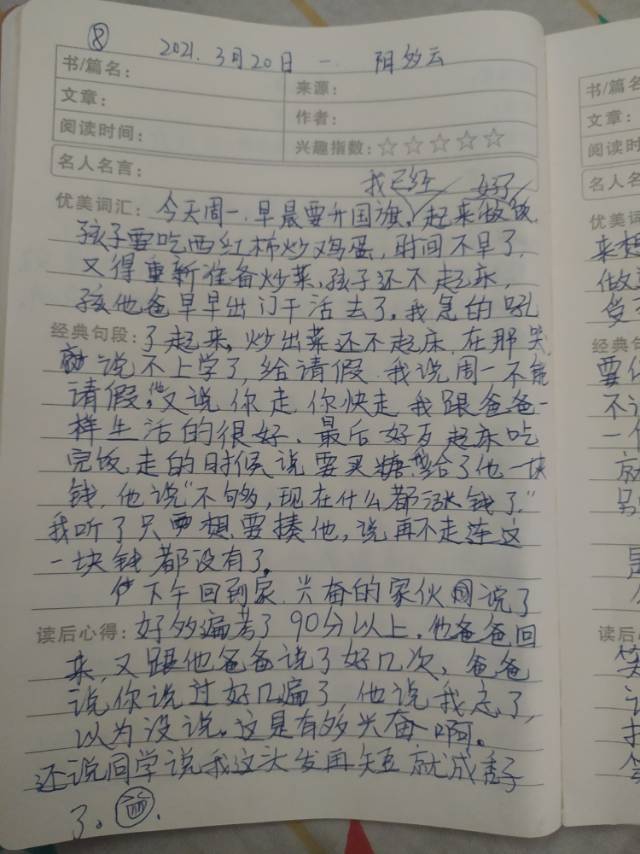 ⑧ 2021. 3月20日 一. 阴多云
书/篇名： 来源：
文章： 作者：
阅读时间： 兴趣指数：☆☆☆☆☆
名人名言：
我已经 好了
优美词汇： 今天周一.早晨要升国旗,起来做饭
孩子要吃西红柿炒鸡蛋,时间不早了,
又得重新准备炒菜,孩子还不起床,
孩他爸早早出门干活去了,我急的吼
经典句段： 了起来,炒出菜还不起床,在那哭
说不上学了,给请假.我说周一不能
请假,他又说你走.你快走我跟爸爸一
样生活的很好.最后好歹起床吃
完饭.走的时候说要买糖.给了他一块
钱.他说"不够,现在什么都涨钱了."
我听了只想要揍他,说再不走连这
一块钱都没有了。
下午回到家.兴奋的家伙说了
读后心得： 好多遍考了90分以上.他爸爸回
来,又跟他爸爸说了好几次,爸爸
说你说过好几遍了,他说我忘了,
以为没说。这是有多兴奋啊。
还说同学说我这头发再短就成秃子
了。
书/篇名
文章：
阅读时
名人名
优美词
来想
做
经典句
要
不
一
就
是
读后心
笑